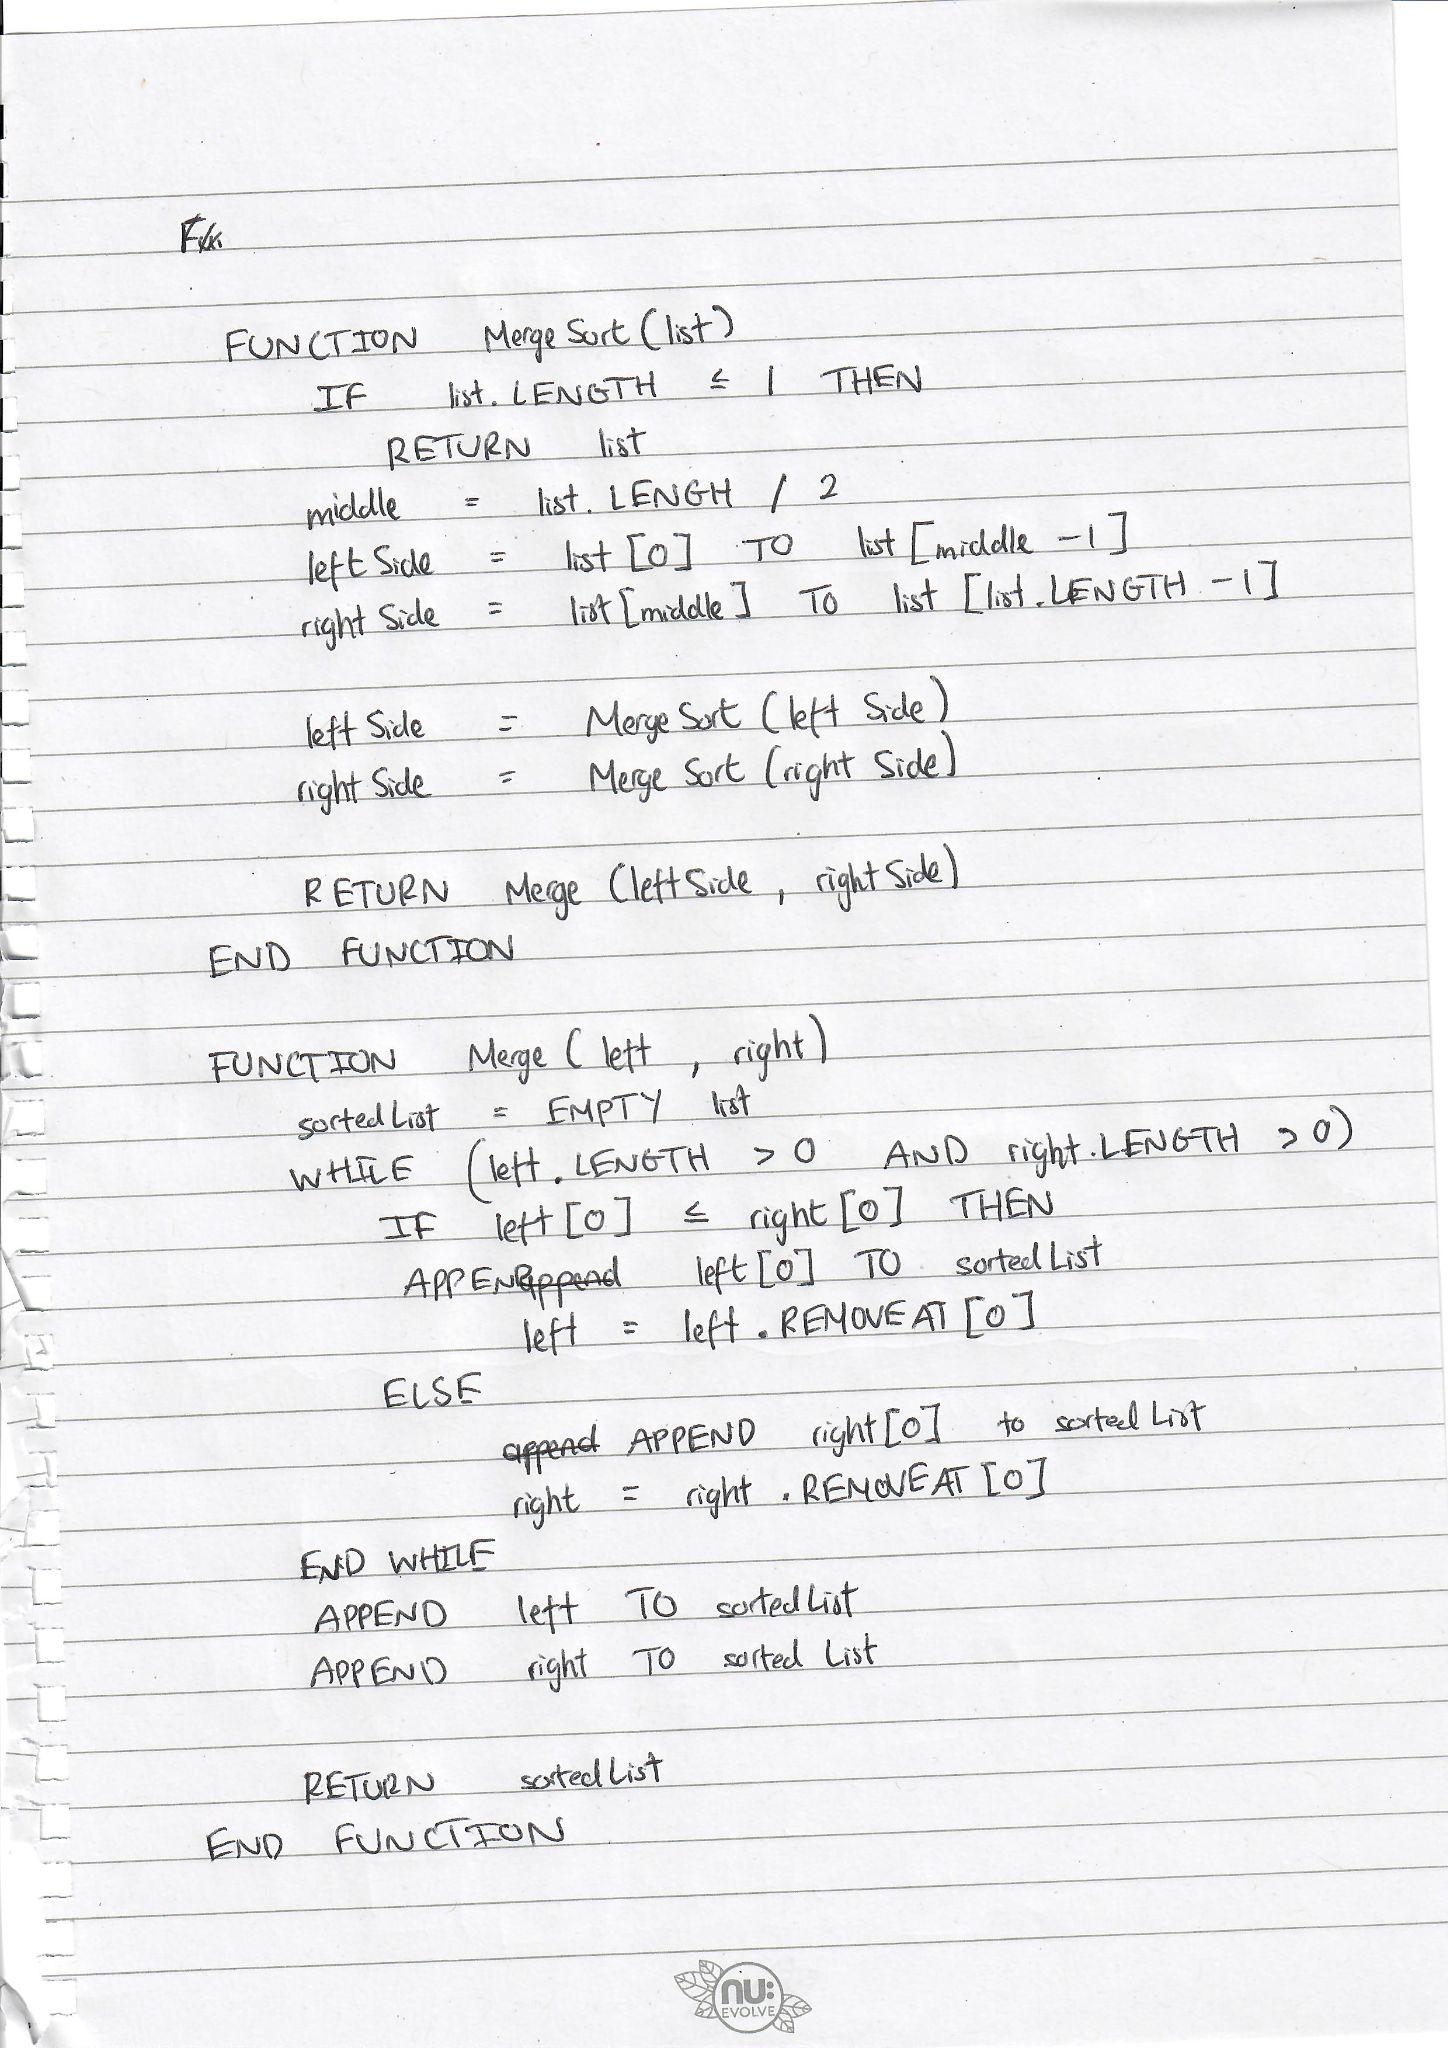 FUNCTION MergeSort(list)
IF list.LENGTH ≤ 1 THEN
RETURN list
middle = list.LENGH / 2
leftSide = list[0] TO list[middle -1]
rightSide = list[middle] TO list[list.LENGTH -1]
leftSide = MergeSort(leftSide)
rightSide = MergeSort(rightSide)
RETURN Merge(leftSide, rightSide)
END FUNCTION
FUNCTION Merge(left, right)
sortedList = EMPTY list
WHILE (left.LENGTH > 0 AND right.LENGTH > 0)
IF left[0] ≤ right[0] THEN
APPEND append left[0] TO sortedList
left = left.REMOVEAT[0]
ELSE
append APPEND right[0] to sortedList
right = right.REMOVEAT[0]
END WHILE
APPEND left TO sortedList
APPEND right TO sortedList
RETURN sortedList
END FUNCTION
nu:
EVOLVE